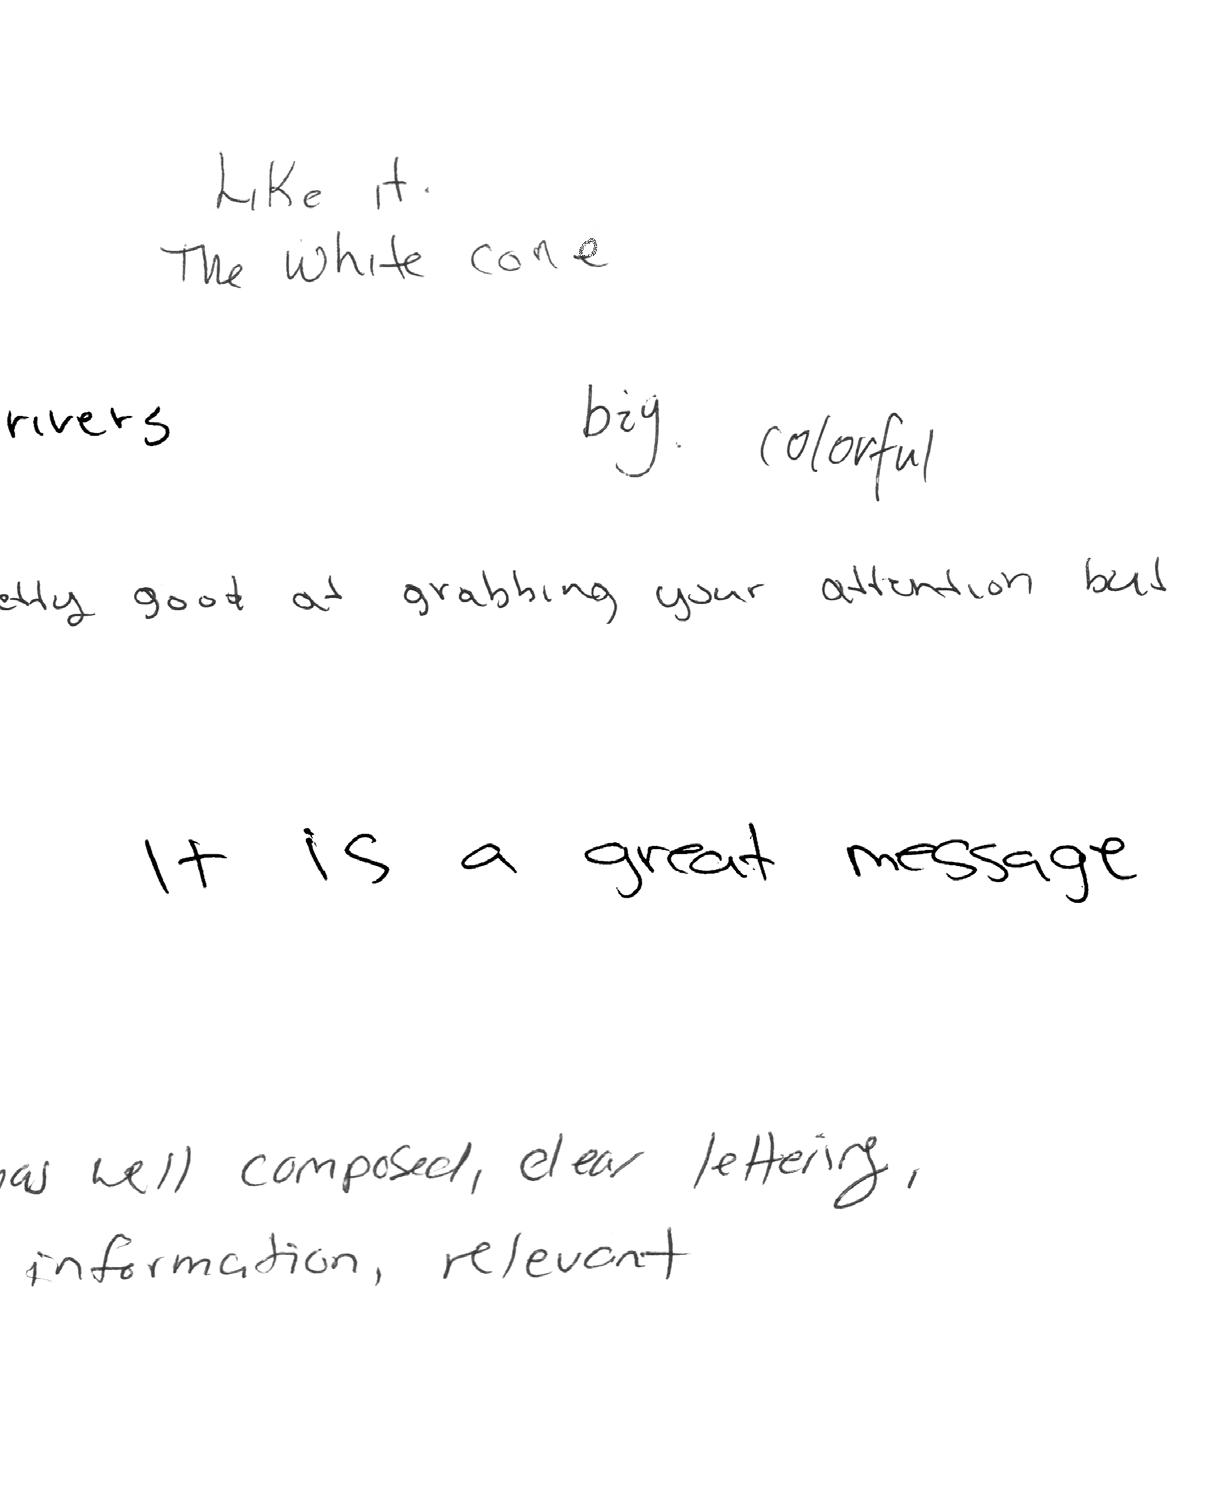 Like it.
The white cone
rivers
big. colorful
etty good at grabbing your attention but
It is a great message
as well composed, clear lettering,
information, relevant